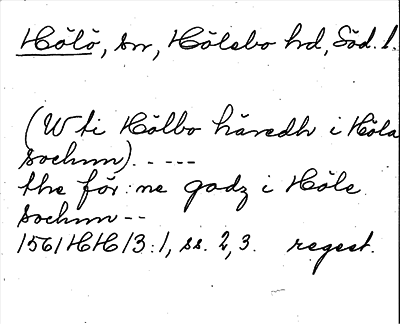 Hölö, sn, Hölebo hd, Söd. l.
(W ti Hölbo häredh i Höla
sochnn). - - - -
the för:ne godz i Höle
sochnn - -
1561 HH 13:1, ss. 2, 3. regest.